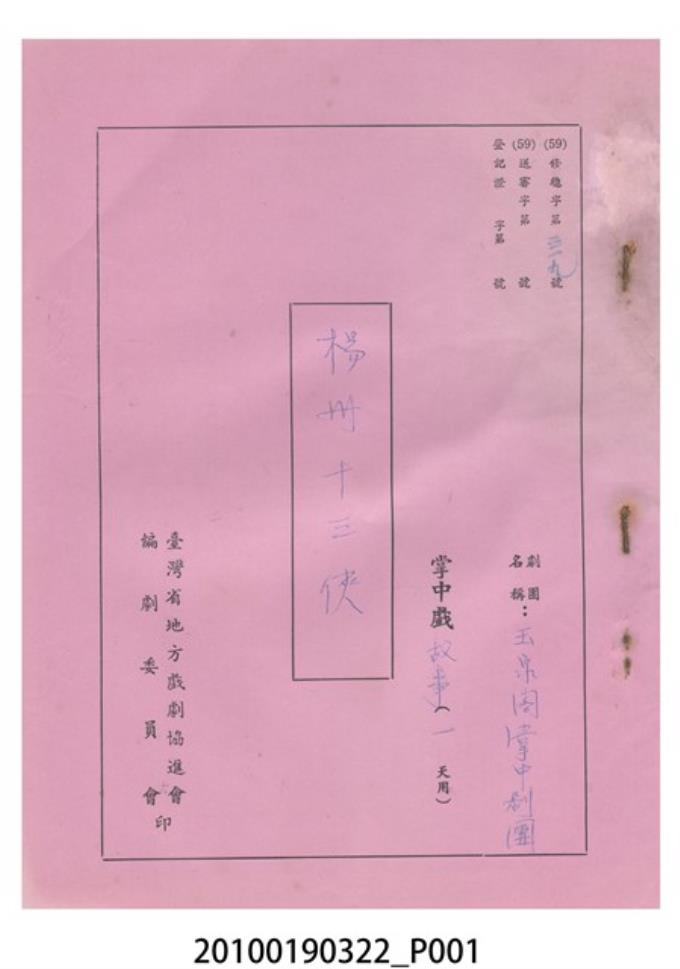 (59)修總字第三一九號
(59)送審字第　號
登記證　字第　號
劇團名稱：玉泉閣掌中劇團
掌中戲故事(一天用)
楊州十三俠
臺灣省地方戲劇協進會
編劇委員會印
20100190322_P001